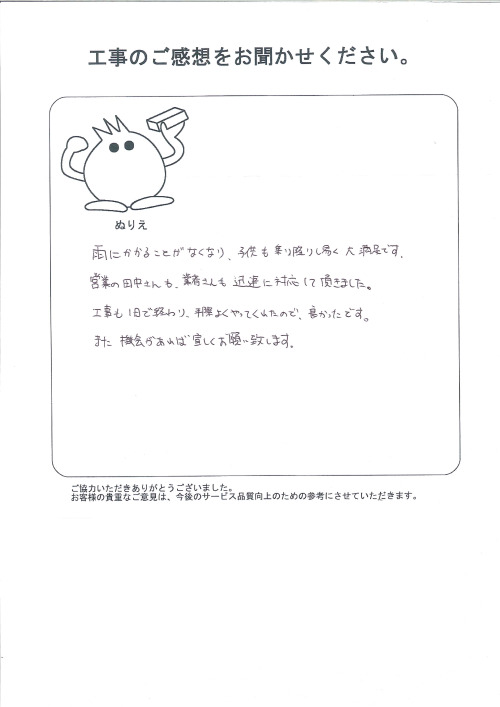 工事のご感想をお聞かせください。
ぬりえ
雨にかかることがなくなり、子供も乗り降りし易く大満足です。
営業の田中さんも、業者さんも迅速に対応して頂きました。
工事も1日で終わり、手際よくやってくれたので、良かったです。
また機会があれば宜しくお願い致します。
ご協力いただきありがとうございました。
お客様の貴重なご意見は、今後のサービス品質向上のための参考にさせていただきます。